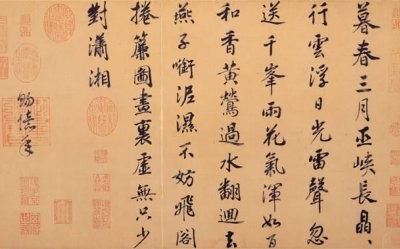 暮春三月巫峽長晶
行雲浮日光雷聲忽
送千峯雨花氣渾如百
和香黃鶯過水翻迴去
燕子銜泥濕不妨飛閣
捲簾圖畫裏虛無只少
對瀟湘
賜億年